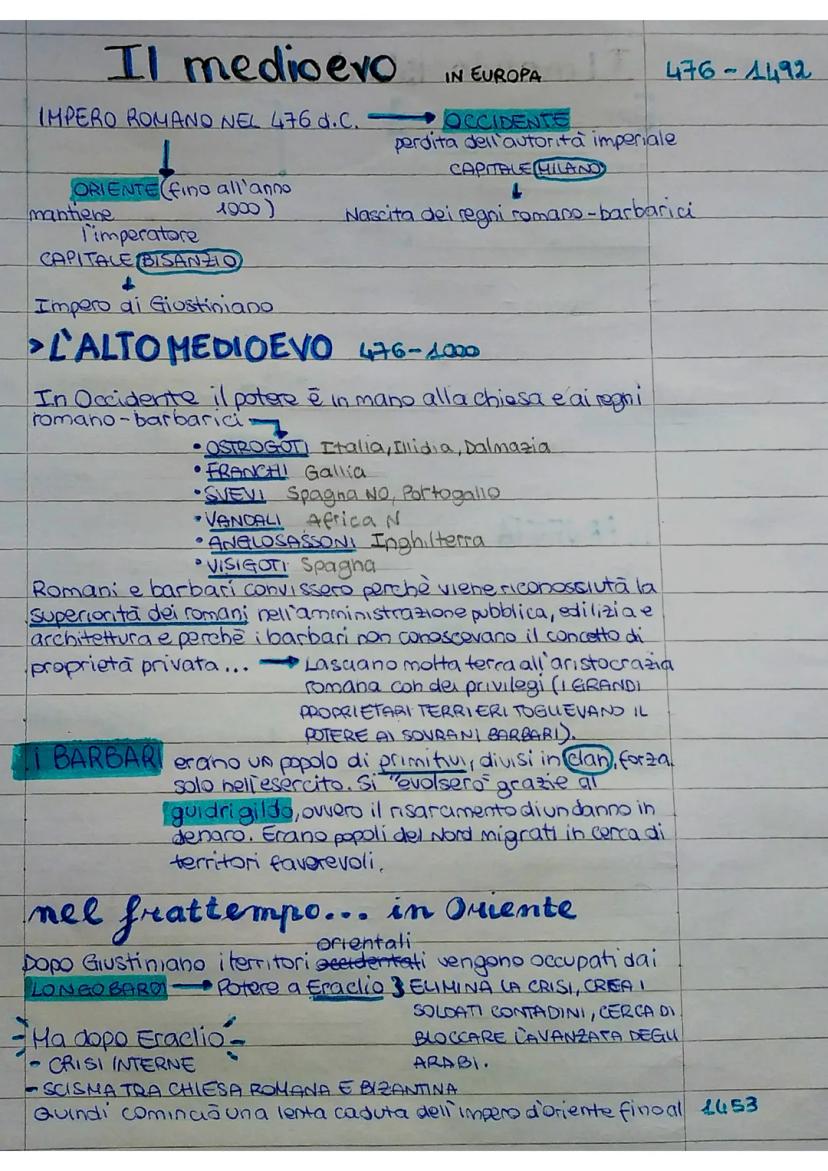 Il medioevo IN EUROPA 476-1492
IMPERO ROMANO NEL 476 d.C. → OCCIDENTE
perdita dell'autorità imperiale
CAPITALE MILANO
ORIENTE (fino all'anno 1000)
mantiene l'imperatore
Nascita dei regni romano-barbarici
CAPITALE BISANZIO
Impero di Giustiniano
>L'ALTO MEDIOEVO 476-1000
In Occidente il potere è in mano alla chiesa e ai regni
romano-barbarici
• OSTROGOTI Italia, Illidia, Dalmazia
• FRANCHI Gallia
• SVEVI Spagna NO, Portogallo
• VANDALI Africa N
• ANGLOSASSONI Inghilterra
• VISIGOTI Spagna
Romani e barbari convissero perchè viene riconossiuta la
superiorità dei romani nell'amministrazione pubblica, edilizia e
architettura e perchè i barbari non conoscevano il concetto di
proprietà privata... → Lasciano molta terra all'aristocrazia
romana con dei privilegi (I GRANDI
PROPRIETARI TERRIERI TOGLIEVANO IL
POTERE AI SOVRANI BARBARI).
I BARBARI erano un popolo di primitivi, divisi in clan, forza
solo nell'esercito. Si "evolsero" grazie al
guidrigildo, ovvero il risarcimento di un danno in
denaro. Erano popoli del Nord migrati in cerca di
territori favorevoli.
nel frattempo... in Oriente
orientali
Dopo Giustiniano i territori occidentali vengono occupati dai
LONGOBARDI → Potere a Eraclio } ELIMINA LA CRISI, CREA I
SOLDATI CONTADINI, CERCA DI
BLOCCARE L'AVANZATA DEGLI
ARABI.
Ma dopo Eraclio
- CRISI INTERNE
- SCISMA TRA CHIESA ROMANA E BIZANTINA
Quindi cominciò una lenta caduta dell'impero d'oriente fino al 1453